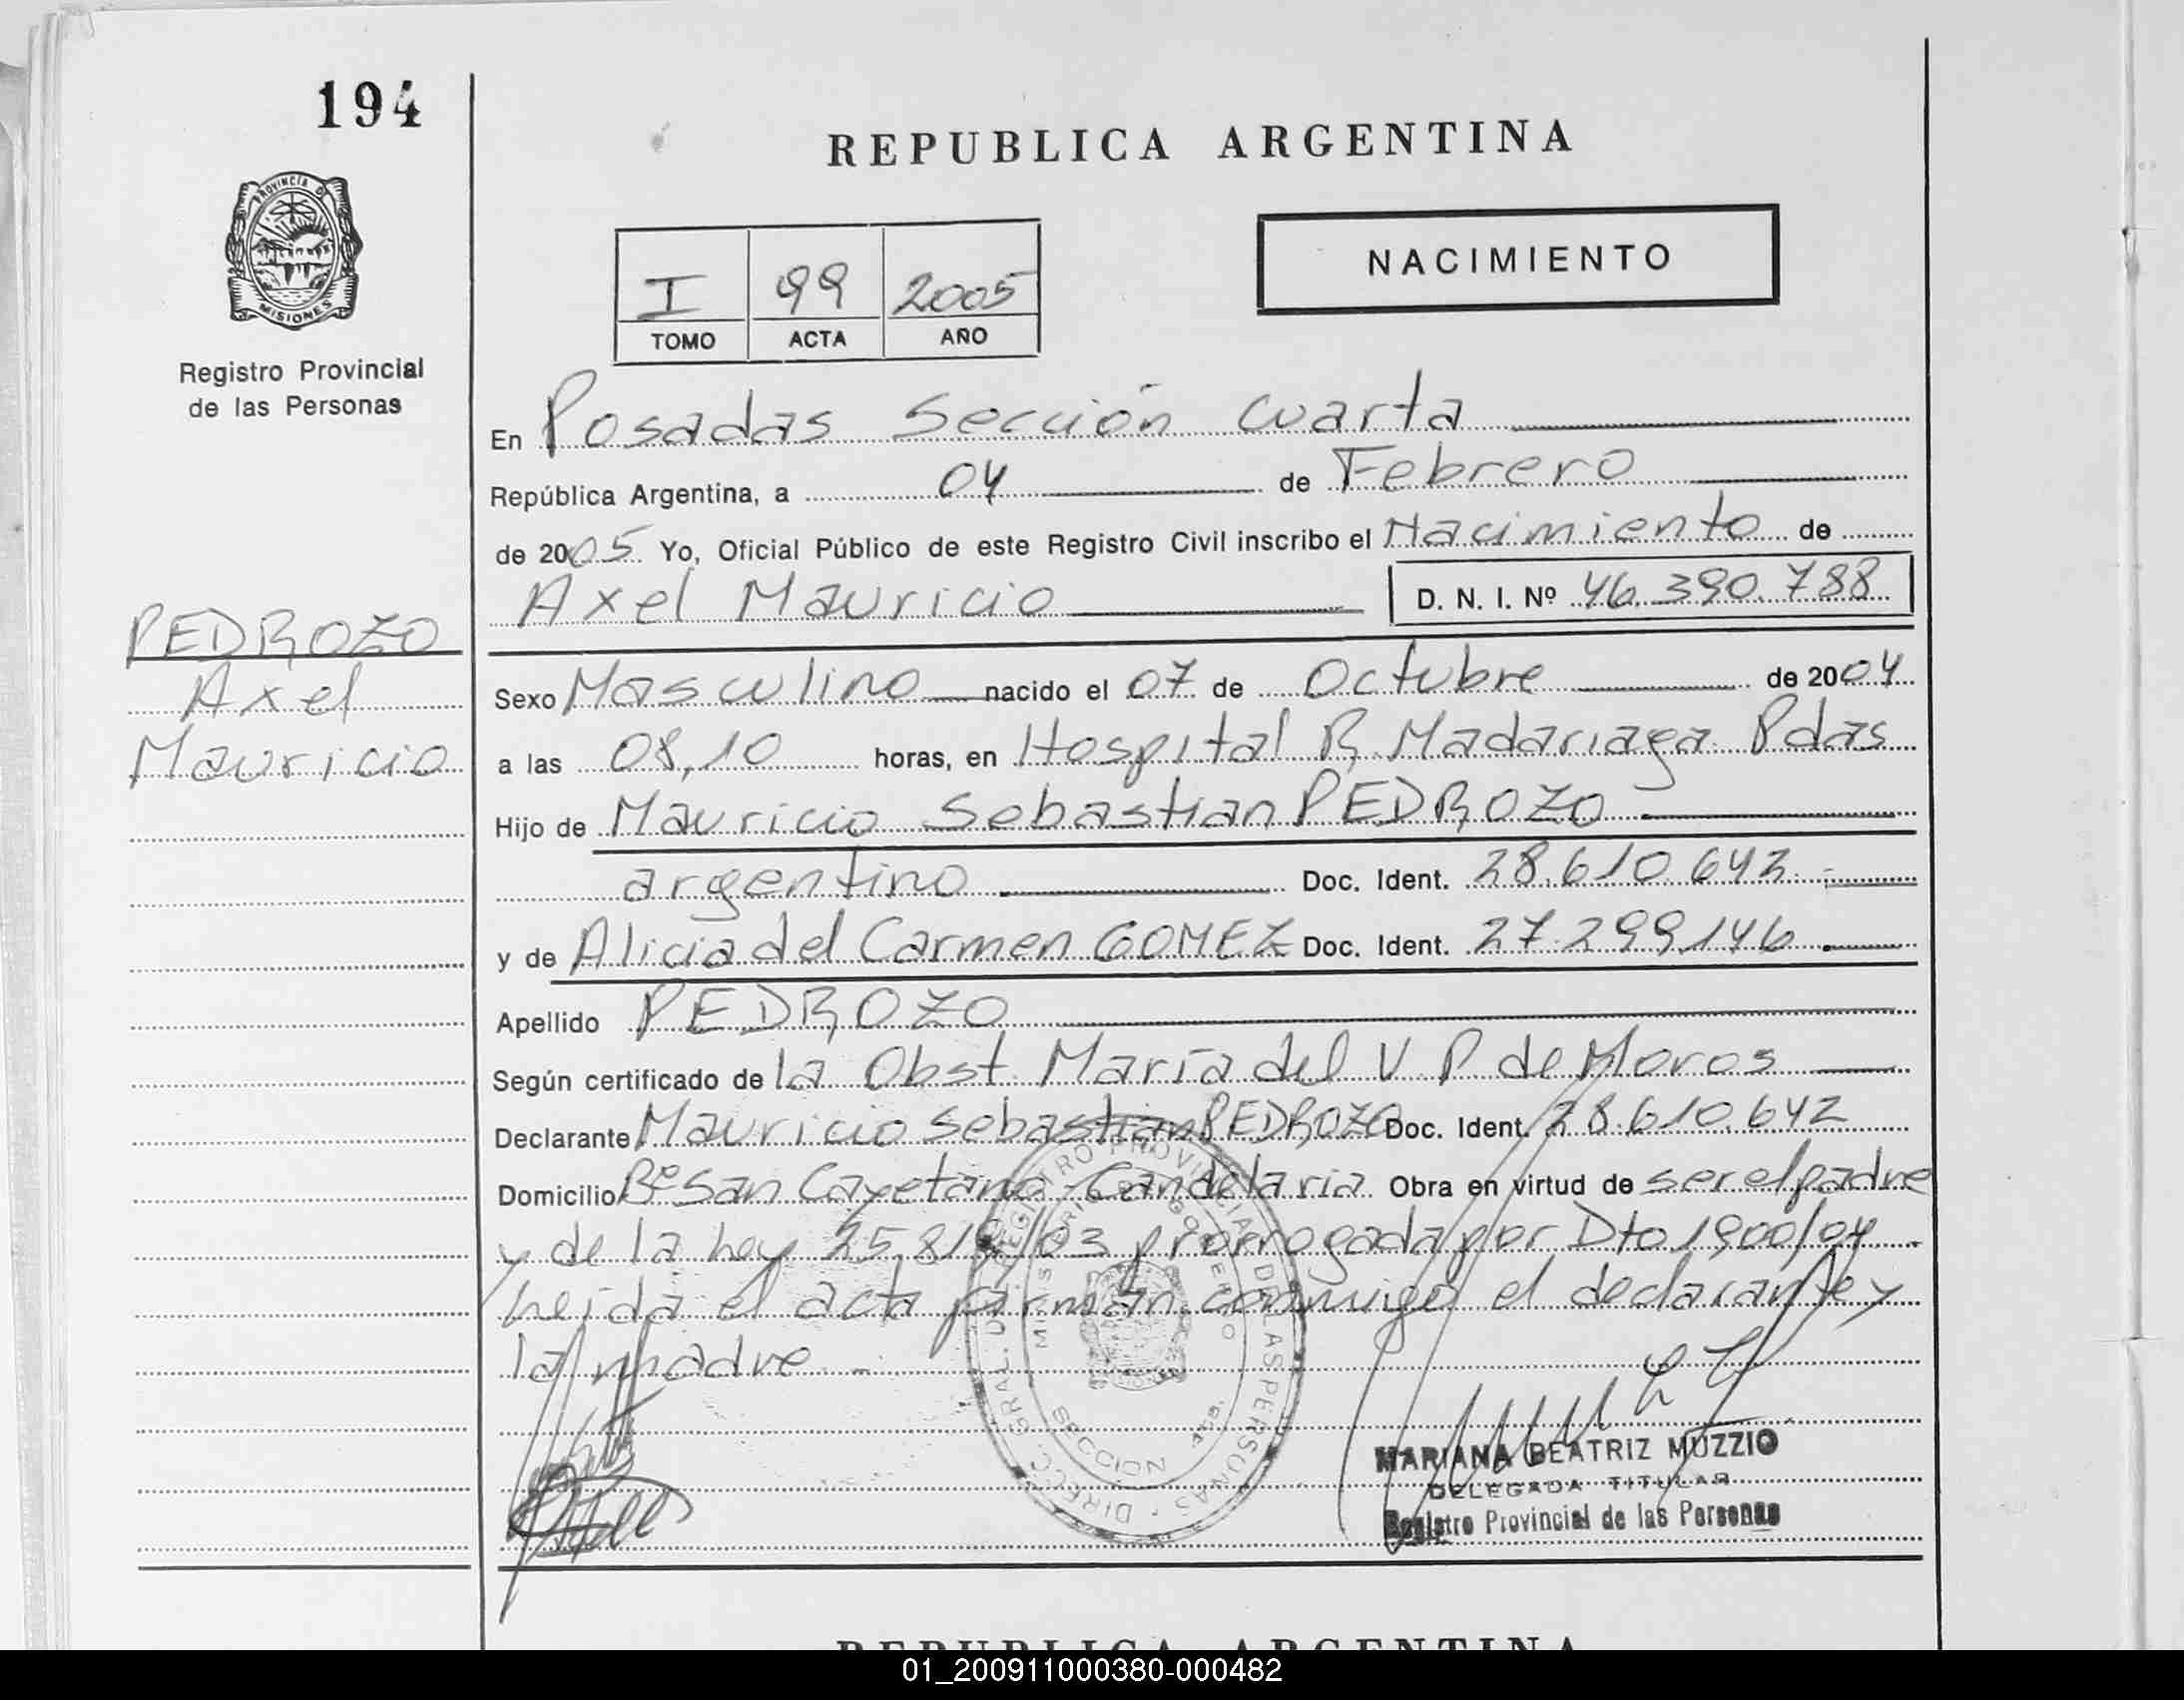 194
REPUBLICA ARGENTINA
PROVINCIA D
MISIONES
Registro Provincial
de las Personas
I 99 2005
TOMO ACTA AÑO
NACIMIENTO
En Posadas Sección Cuarta
República Argentina, a 04 de Febrero
de 2005 Yo, Oficial Público de este Registro Civil inscribo el Nacimiento de
Axel Mauricio D. N. I. Nº 46.390.788
PEDROZO
Axel
Mauricio
Sexo Masculino nacido el 07 de Octubre de 2004
a las 08,10 horas, en Hospital R. Madariaga Pdas
Hijo de Mauricio Sebastian PEDROZO
argentino Doc. Ident. 28.610.642
y de Alicia del Carmen GOMEZ Doc. Ident. 27.299.146
Apellido PEDROZO
Según certificado de la Obst. María del V. P. de Moros
Declarante Mauricio Sebastian PEDROZO Doc. Ident. 28.610.642
Domicilio Bº San Cayetano - Candelaria Obra en virtud de ser el padre
y de la Ley 25.819/03 prorrogada por Dto 1900/04
Leída el acta firman conmigo el declarante y
la madre -
DIRECC. GRAL. DEL REGISTRO PROVINCIAL DE LAS PERSONAS
MINISTERIO DE GOBIERNO
SECCION 4ta.
MARIANA BEATRIZ MUZZIO
DELEGADA TITULAR
Registro Provincial de las Personas
REPUBLICA ARGENTINA
01_200911000380-000482